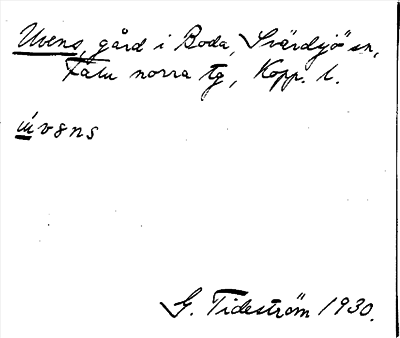 Uvens, gård i Boda, Svärdsjö sn,
Falu norra tg, Kopp. l.
úvəns
G. Tideström 1930.